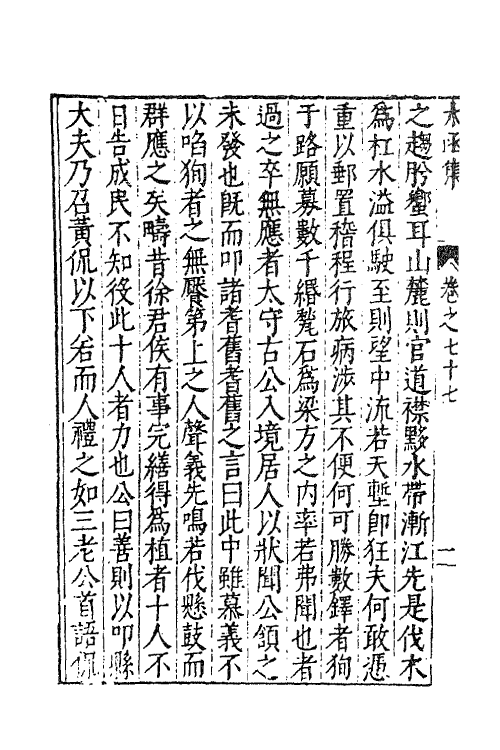 太函集 卷之七十七 二
之趨肹蠁耳山麓則官道襟黟水帶漸江先是伐木
為杠水溢俱駛至則望中流若天塹即狂夫何敢慿
重以郵置稽程行旅病涉其不便何可勝數鐸者狥
于路願募數千緡甃石為梁方之内率若弗聞也者
過之卒無應者太守古公入境居人以狀聞公頷之
未發也既而叩諸耆舊耆舊之言曰此中雖慕義不
以啗狥者之無膺第上之人聲義先鳴若伐懸鼓而
群應之矣疇昔徐君侯有事完繕得為植者十人不
日告成民不知役此十人者力也公曰善則以叩縣
大夫乃召黃侃以下若而人禮之如三老公首語侃